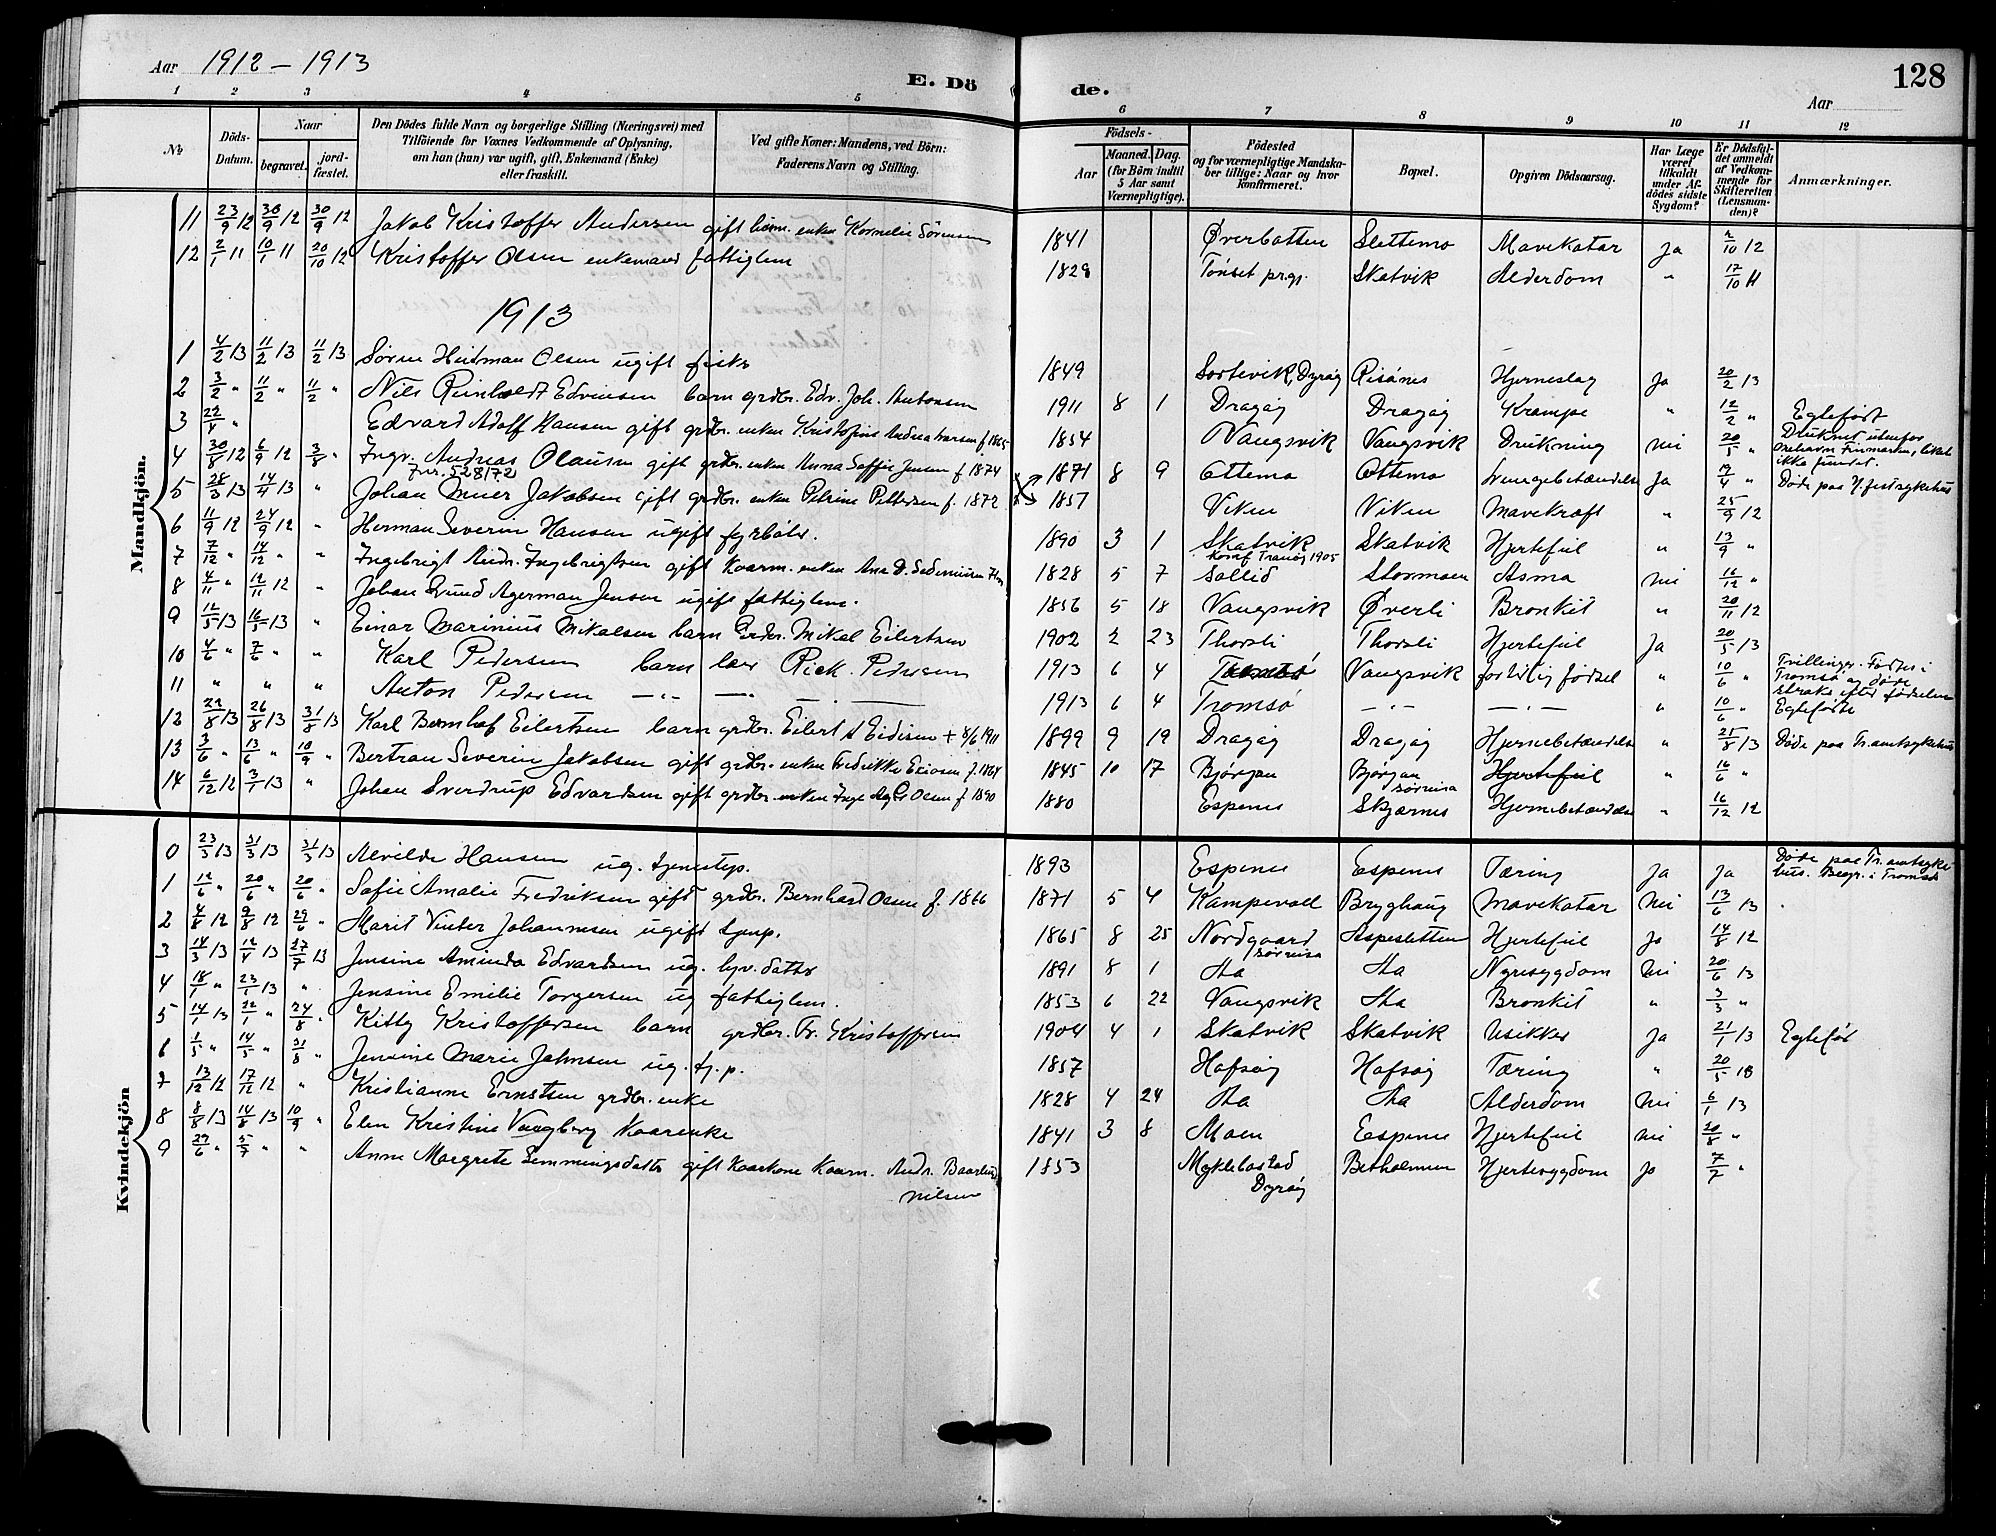 Aar 1912 - 1913
E. Dö de.
128
Aar
1 2 3 4 5 6 7 8 9 10 11 12
No
Döds-Datum.
Naar
begravet.
jord-fæstet.
Den Dödes fulde Navn og borgerlige Stilling (Næringsvei) med Tilföiende for Voxnes Vedkommende af Oplysning, om han (hun) var ugift, gift, Enkemand (Enke) eller fraskilt.
Ved gifte Koner: Mandens, ved Börn: Faderens Navn og Stilling.
Födsels-
Aar
Maaned. Dag.
(for Börn indtil 5 Aar samt Værnepligtige).
Födested og for værnepligtige Mandska-ber tillige: Naar og hvor konfirmeret.
Bopæl.
Opgiven Dödsaarsag.
Har Læge været tilkaldt under Af-dödes sidste Sygdom?
Er Dödsfal-det anmeldt af Vedkom-mende for Skifteretten (Lensman-den)?
Anmærkninger.
Mandkjön.
11 23/9 12 30/9 12 30/9 12 Jakob Kristoffer Andersen gift enken Kornelie Sørensen 1841 Øverbotten Slettemo Mavekatar Ja 2/10 12
12 2/1 11 10/1 11 20/10 12 Kristoffer Olsen enkemand fattiglem 1829 Tönset prgj. Skatvik Alderdom " 17/10 11
1913
1 4/2 13 11/2 13 11/2 13 Sören Heitman Olsen ugift fisker 1849 Sortevik, Dyröy Risönes Hjerneslag Ja 20/2 13
2 3/2 " 11/2 " 11/2 " Nils Reinholdt Edvinsen barn grdbr. Edv. Joh. Antonsen 1911 8 1 Dragöy Dragöy Krampe " 12/2 " Egtefödt
3 22/4 " Edvard Adolf Hansen gift grdbr. enken Kristofine Andrea Ivarsen f. 1865 1854 Vangsvik Vangsvik Drukning nei 20/5 " Druknet utenfor Finmarken, liket ikke fundet.
4 30/8 12 6/9 12 3/8 " Ingv. Andreas Olausen gift grdbr. enken Anna Soffie Jensen f. 1874 1871 8 9 Ottemo Ottemo Lungebetændelse Ja 19/4 " Döde paa
5 28/3 13 14/4 13 " Johan Meier Jakobsen gift grdbr. enken Petrine Pettersen f. 1872 1857 Viken Viken Mavekræft " 25/9 12
6 11/9 12 24/9 12 " Herman Severin Hansen ugift fyrböter. 1890 3 1 Skatvik Konf. Tranöy 1905 Skatvik Hjertefeil " 13/9 "
7 7/12 " 14/12 " " Ingebrigt Andr. Ingebrigtsen gift kaarm. enken Ana D. 1828 5 7 Sollid Stormoen Asma nei 16/12 "
8 4/11 " 12/11 12 " Johan Agerman Jensen ugift fattiglem. 1856 5 18 Vangsvik Øverli Bronkit " 20/11 12
9 12/5 13 16/5 13 " Einar Marinius Mikalsen barn Grdbr. Mikal Eilertsen 1902 2 23 Thorsli Thorsli Hjertefeil Ja 20/5 13
10 4/6 " 7/6 " " Karl Pedersen barn Rick. Pedersen 1913 6 4 Tromsö Vangsvik for tidlig födsel " 10/6 " Tvillinger. Födtes i Tromsö og döde straks efter födselen
11 " " " Anton Pedersen — " — 1913 6 4 Tromsö — " — — " — " 10/6 " Egtefödte
12 22/8 13 26/8 13 31/8 13 Karl Bernhof Eilertsen barn grdbr. Eilert A Eidisen + 8/6 1911 1899 9 19 Dragöy Dragöy Hjernebetændelse " 25/8 13 Döde paa Tr. amtsykehus
13 3/6 " 13/6 " 10/9 " Bertran Severin Jakobsen gift grdbr. enken Fredrikke f. 1864 1845 10 17 Björgan Björgan Sörreisa Hjertefeil " 16/6 "
14 6/12 12 3/1 13 " Johan Sverdrup Edvardsen gift grdbr. enken Inge Olsen f. 1890 1880 Espenes Skjærnes Hjernebetændelse " 16/12 12
Kvindekjön
0 23/3 13 31/3 13 31/3 13 Alvilde Hansen ug. tjenestep. 1893 Espenes Espenes Tæring Ja Ja Döde paa Tr. amtsyke hus. Begr. i Tromsö
1 12/6 " 20/6 " 20/6 " Sofie Amalie Fredriksen gift grdbr. Bernhard Olsen f. 1866 1871 5 4 Kampevoll Bryghaug Mavekatar Nei 13/6 13
2 4/8 12 9/8 12 29/6 " Marit Vinter Johannesen ugift tjenp. 1865 8 25 Nordgaard Sörreisa Aspesletten Hjertefeil Ja 14/8 12
3 14/3 13 12/4 13 27/7 13 Jensine Aminda Edvardsen ug. datter 1891 8 1 Aa Aa Nyresygdom nei 20/6 13
4 18/1 " 23/1 13 " Jensine Emilie Torgersen ug fattiglem. 1853 6 22 Vangsvik Aa Bronkit " 3/3 "
5 14/1 13 22/1 " 24/8 " Kitty Kristoffersen barn grdbr. Fr. Kristoffersen 1904 4 1 Skatvik Skatvik Usikker Ja 21/1 13 Egtefödt
6 1/5 " 14/5 " 31/8 " Jensine Marie Johnsen ug. tj. p. 1857 Hofsöy Hofsöy Tæring " 20/5 13
7 13/12 12 17/12 12 " Kristianne Ernstsen grdbr. enke 1828 4 24 Aa Aa Alderdom nei 6/1 13
8 8/8 13 14/8 13 10/9 " Elen Kristine Vangberg Kaarenke 1841 3 8 Moen Espenes Hjertefeil nei 20/8 "
9 29/6 " 5/7 " " Anne Margrete Lemmingsdatter gift Kaarkone Kaarm. Andr. Nilsen 1853 Myklebostad Dyröy Betholmen Hjertesygdom ja 7/7 "